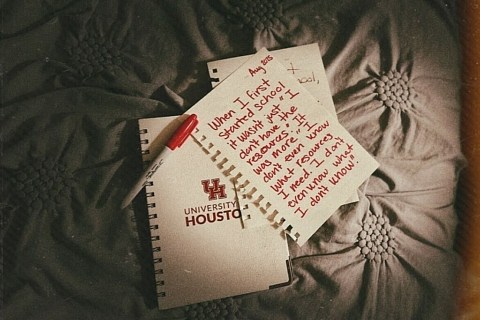 Aug 2025
When I first
started school
it wasn't just "I
don't have the
resources." It
was more "I
don't even know
what resources
I need. I don't
even know what
I don't know."
UH
UNIVERSITY
HOUSTO